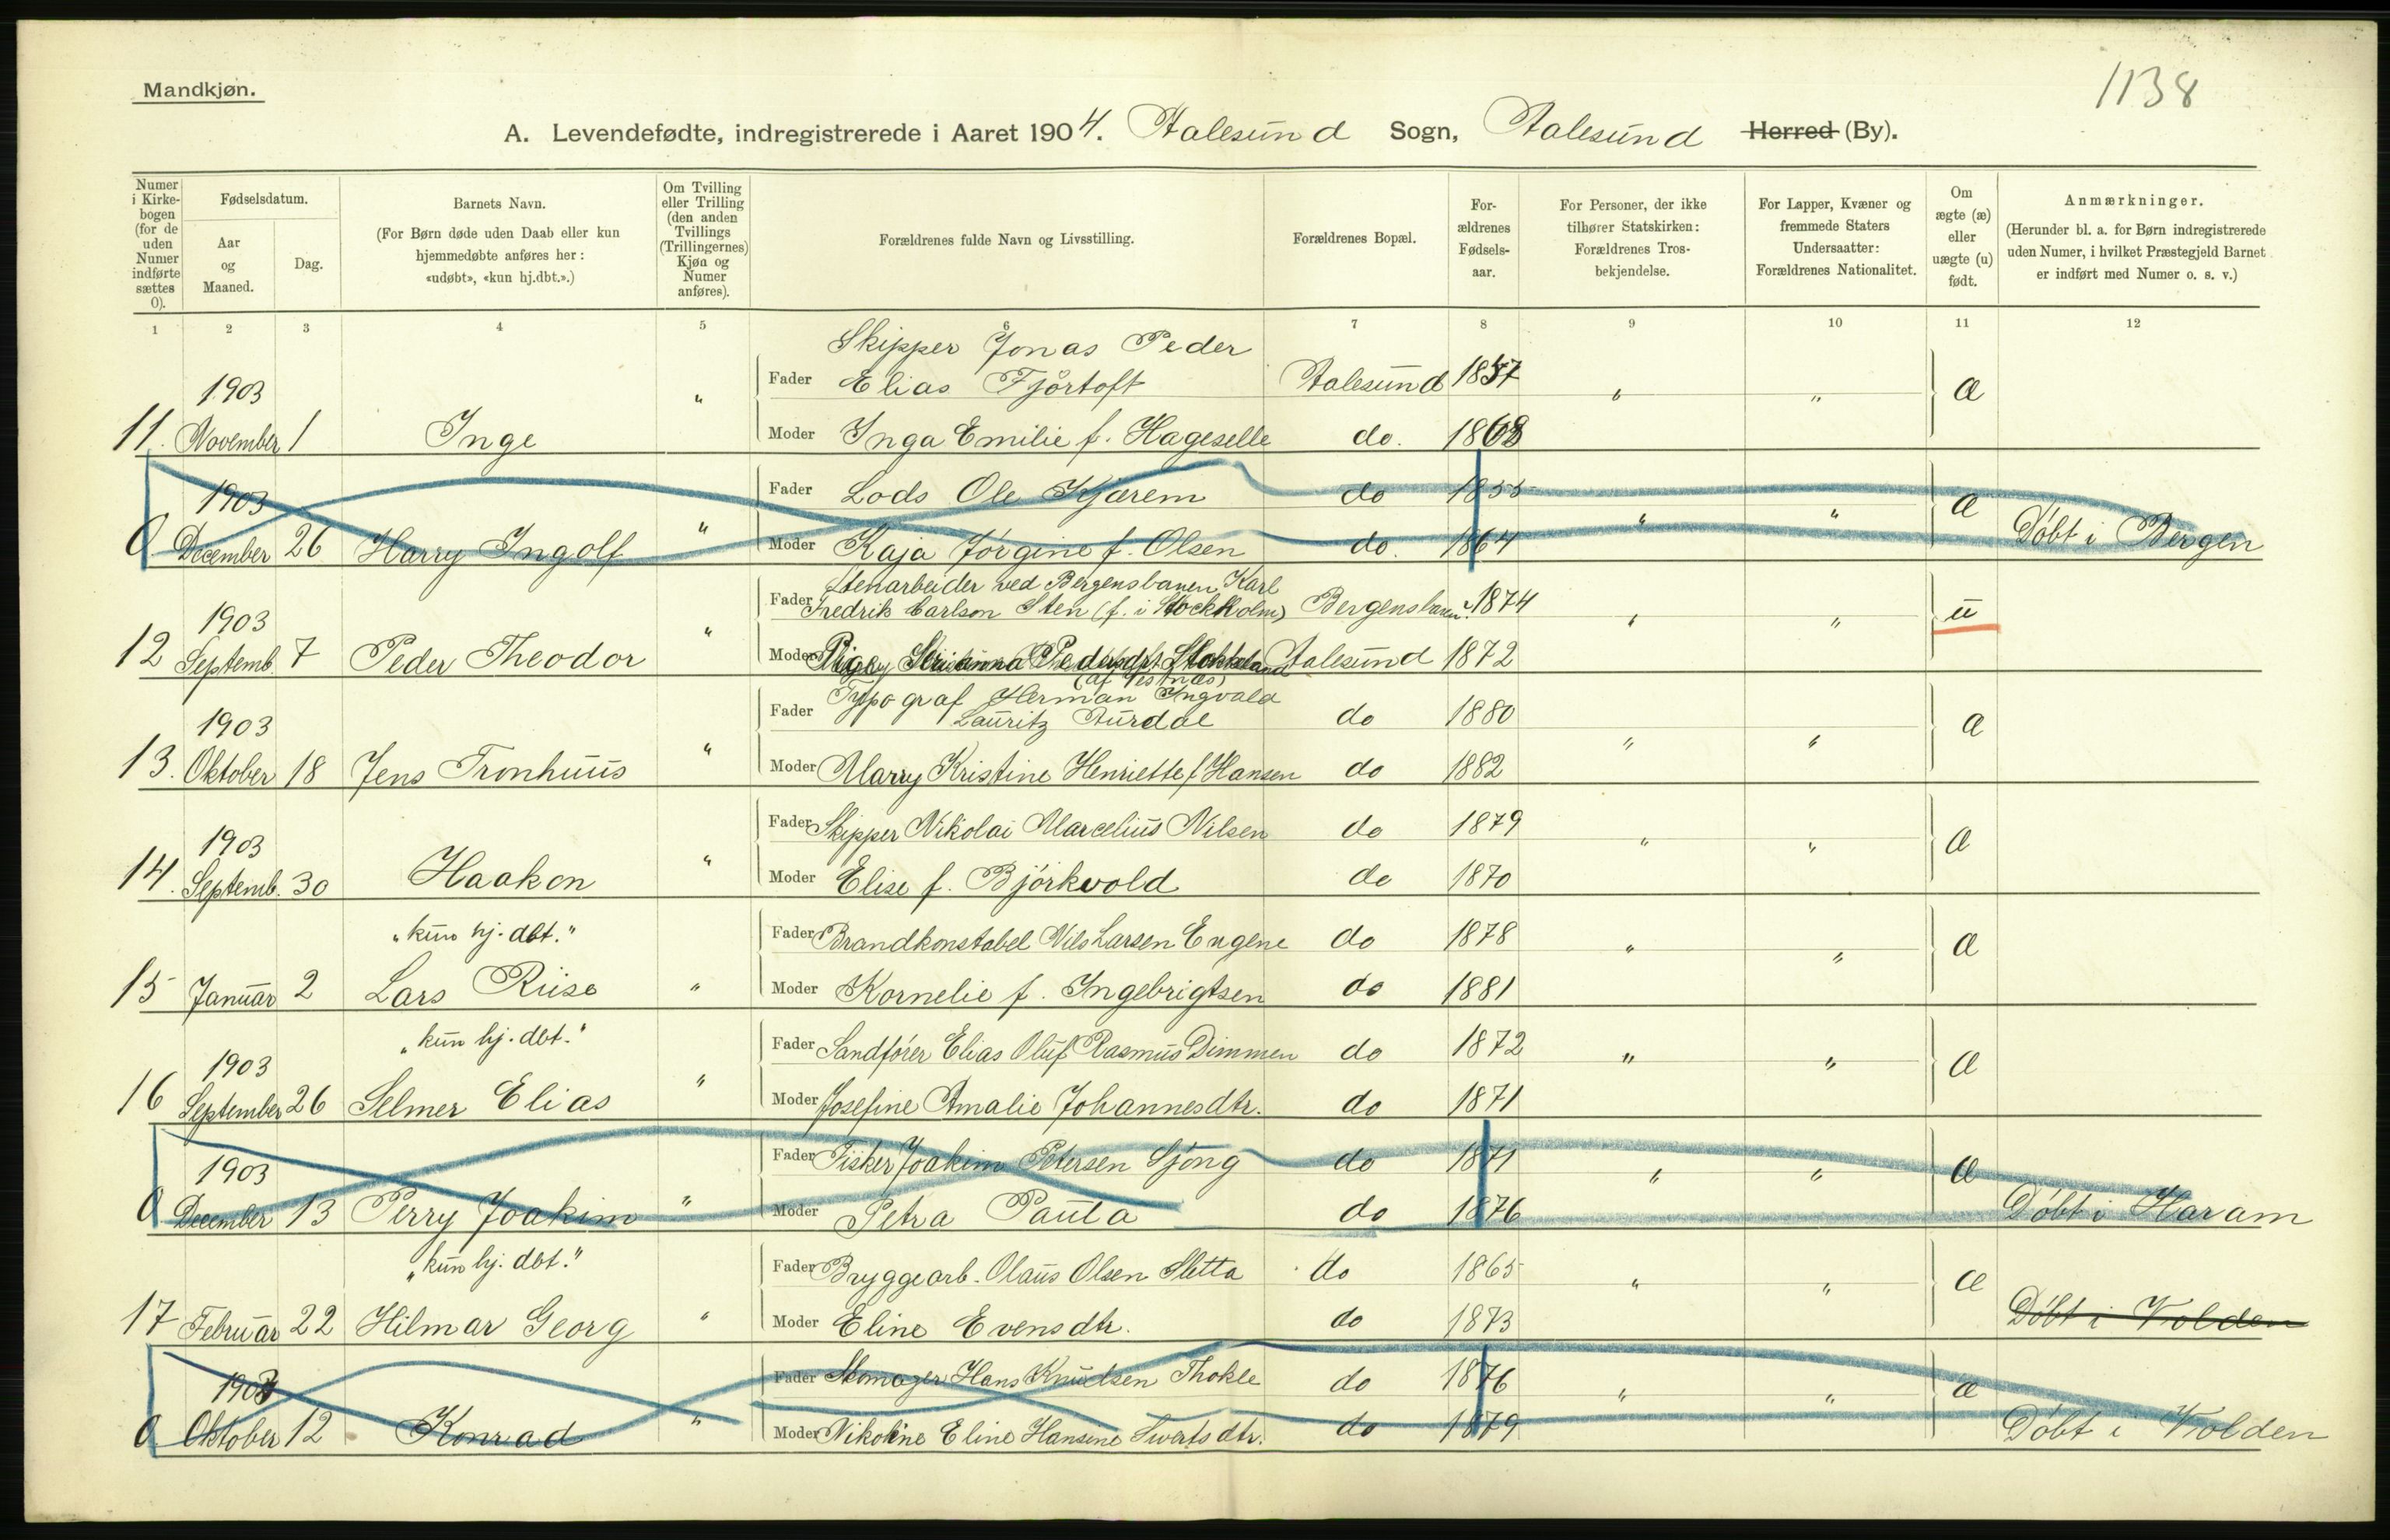 1138
Mandkjøn.
A. Levendefødte, indregistrerede i Aaret 1904. Aalesund Sogn, Aalesund Herred (By).
Numer i Kirkebogen (for de uden Numer indførte sættes 0).
Fødselsdatum.
Aar og Maaned.
Dag.
Barnets Navn.
(For Børn døde uden Daab eller kun hjemmedøbte anføres her: «udøbt», «kun hj.dbt.».)
Om Tvilling eller Trilling (den anden Tvillings (Trillingernes) Kjøn og Numer anføres).
Forældrenes fulde Navn og Livsstilling.
Forældrenes Bopæl.
Forældrenes Fødselsaar.
For Personer, der ikke tilhører Statskirken: Forældrenes Trosbekjendelse.
For Lapper, Kvæner og fremmede Staters Undersaatter: Forældrenes Nationalitet.
Om ægte (æ) eller uægte (u) født.
Anmærkninger.
(Herunder bl. a. for Børn indregistrerede uden Numer, i hvilket Præstegjeld Barnet er indført med Numer o. s. v.)
1 2 3 4 5 6 7 8 9 10 11 12
Skipper Jonas Peder
1903 " Fader Elias Fjørtoft Aalesund 1857 " " æ
11. November 1 Inge Moder Inga Emilie f. Hageselle do. 1868
1903 Fader Lods Ole Kjærem do 1855 æ
0 December 26 Harry Ingolf " Moder Kaja Jørgine f. Olsen do. 1864 " " Døbt i Bergen
Stenarbeider ved Bergensbanen Karl
1903 Fader Fredrik Carlson Sten (f. i Stockholm) Bergensbanen 1874 " " u
12 Septemb. 7 Peder Theodor " Moder Pige Pedersdt. Aalesund 1872
(af Vestnæs)
Typograf Herman Ingvald
1903 Fader Lauritz Aurdal do 1880 æ
13. Oktober 18 Jens Tronhuus " Moder Marry Kristine Henriette f. Hansen do 1882 " "
1903 Fader Skipper Nikolai Marcelius Nilsen do 1879 " " æ
14. Septemb. 30 Haakon " Moder Elise f. Bjørkvold do 1870
"kun hj. dbt." Fader Brandkonstabel Nils Larsen Eugene do 1878 " " æ
15 Januar 2 Lars Riise " Moder Kornelie f. Ingebrigtsen do 1881
"kun hj. dbt." Fader Sandfører Elias Oluf Rasmus Dimmen do 1872 " " æ
1903
16 September 26 Selmer Elias " Moder Josefine Amalie Johannesdtr. do 1871
1903 Fader Fisker Joakim Petersen Sjong do 1871 " " æ
0 December 13 Perry Joakim " Moder Petra Paula do 1876 Døbt i Haram
"kun hj. dbt." Fader Bryggearb. Olaus Olsen Sletta do 1865 " " æ
17 Februar 22 Hilmar Georg " Moder Eline Evensdtr. do 1873 Døbt i Volden
1903 Fader Skomager Hans Knudsen Thokle do 1876 " " æ
0 Oktober 12 Konrad " Moder Nikoline Eline Hansine Sivertsdtr. do 1879 Døbt i Volden